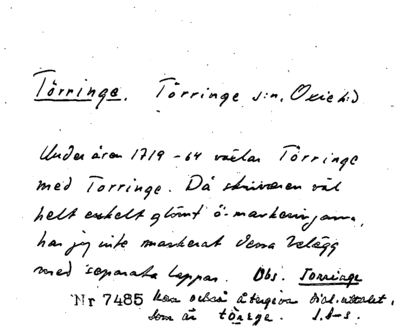 Törringe. Törringe s:n, Oxie h:d
Under åren 1719-64 växlar Törringe
med Torringe. Då skrivaren väl
helt enkelt glömt ö-markeringarna,
har jag inte markerat dessa belägg
med separata lappar. Obs. Torringe
Nr 7485 kan också återgiva dial.uttalet,
som är törege. S.B-s.